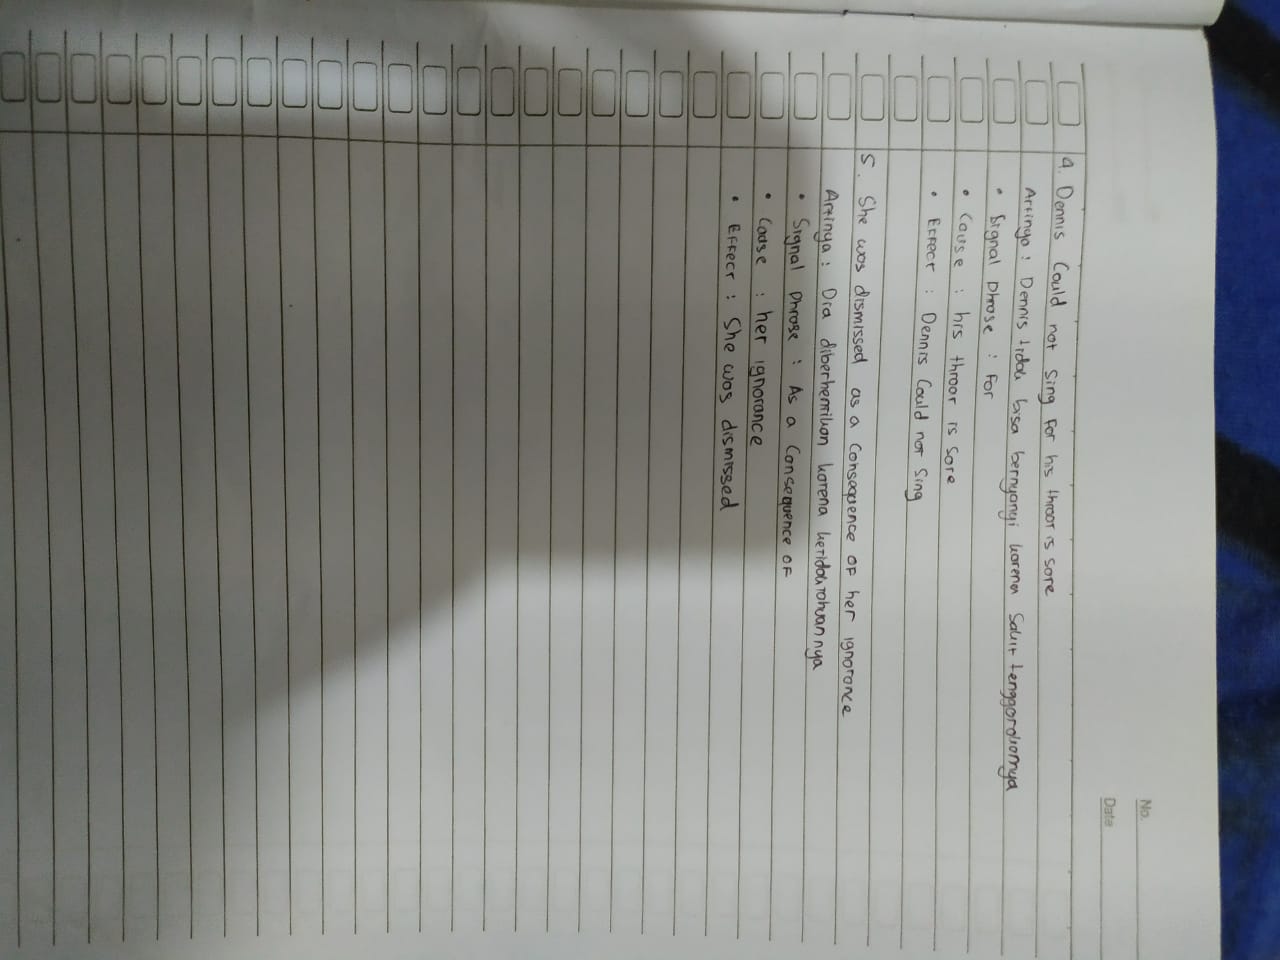 No.
Date
4. Dennis Could not Sing For his throat is sore
Artinya : Dennis tidak bisa bernyanyi karena Sakit tenggorokannya
• Signal Phrase : For
• Cause : his throat is sore
• Effect : Dennis Could not Sing
5. She was dismissed as a Consequence OF her ignorance
Artinya : Dia diberhentikan karena ketidaktahuannya
• Signal Phrase : As a Consequence OF
• Cause : her ignorance
• Effect : She was dismissed